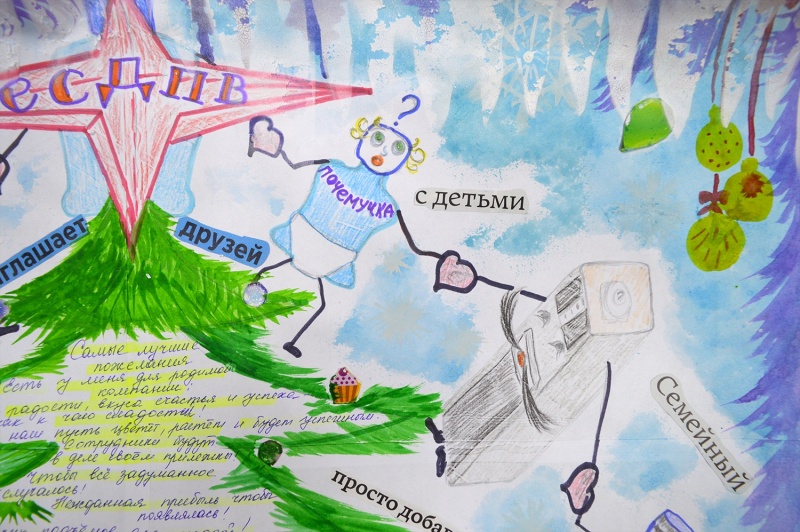 есдпв
?
почемучка
с детьми
глашает
друзей
Самые лучшие
пожелания
Есть у меня для родимой
компании:
радости, вкуса счастья и успеха
как к чаю сладостей!
наш путь цветёт, растём и будет успешным.
Сотрудники будут
в деле
Чтобы всё задуманное
случалось!
Нежданная прибыль чтобы
появлялась!
Семейный
просто добав